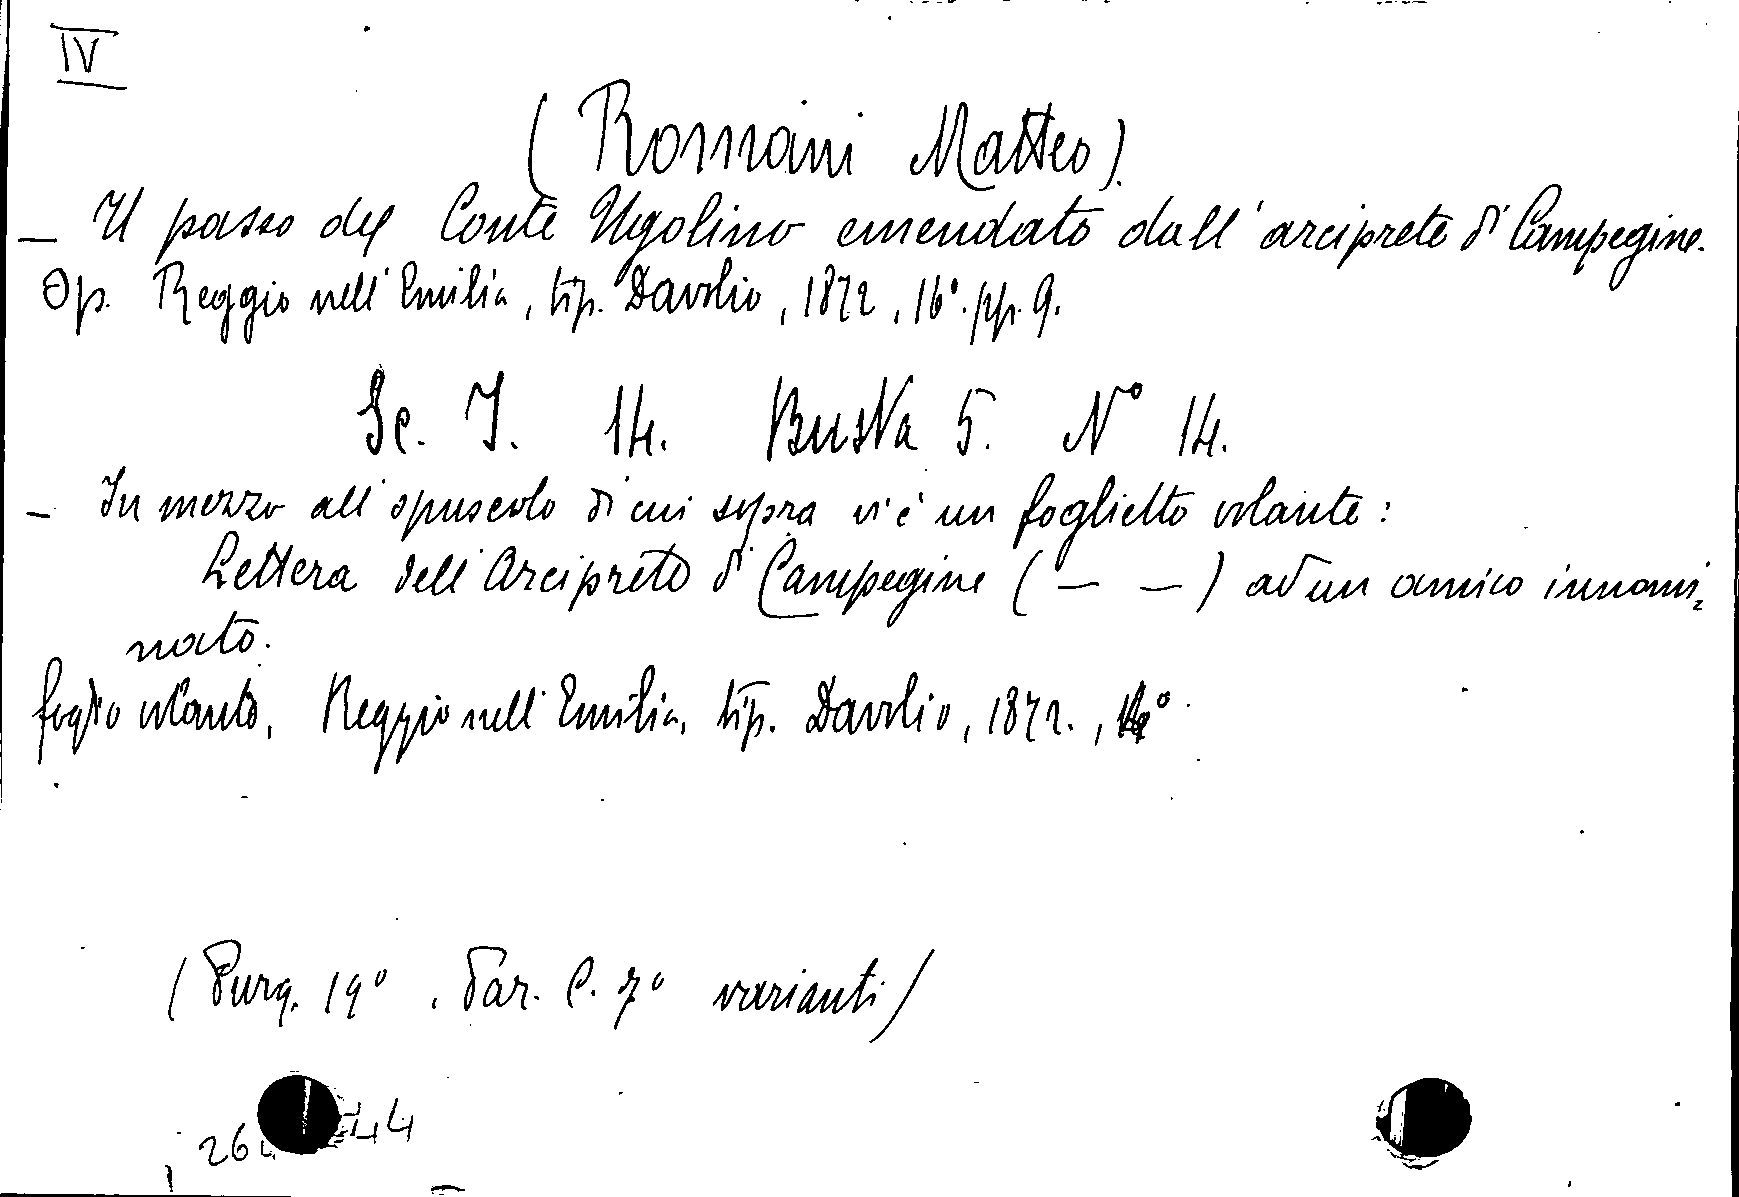 IV
(Romani Matteo).
– Il passo del Conte Ugolino emendato dall'arciprete di Campegine.
Op. Reggio nell'Emilia, tip. Davolio, 1872, 16°. pp. 9.
Sc. I. 14. Busta 5. N° 14.
– In mezzo all'opuscolo di cui sopra vi è un foglietto volante:
Lettera dell'Arciprete di Campegine ( — — ) ad un amico innomi-
nato.
foglio volante, Reggio nell'Emilia, tip. Davolio, 1872.,
(Purg. 19°. Par. C. 7° varianti)